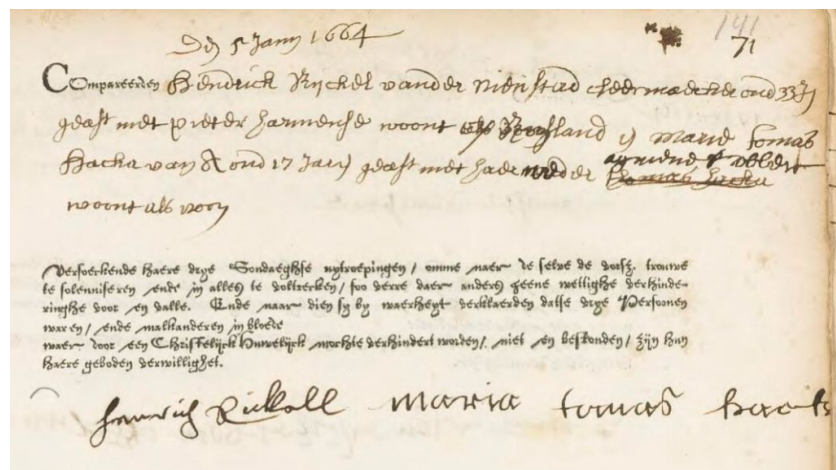 Den 5 Janu 1664
141
71
Compareerden Hendrick Ryckel vander Nienstad cleermaecker oud 33 J
geast met Pieter Harmense woont op Roesland & Marie Tomas
Hacks van A oud 17 Jaer geast met haer moeder
woont als voor
Versoeckende haere drye Sondaeghse uytroepingen / omme naer de selve de voorsz. trouwe
te solenniseren ende in alles te voltrecken / soo verre daer anders geene wettighe verhinde-
ringhe voor en valle. Ende naar dien sy by waerheyt verklaerden datse vrye Persoonen
waren / ende malkanderen in bloede
waer door een Christelijck Huwelijck mochte verhindert worden / niet en bestonden / zijn hun
haere geboden verwillighet.
henrich Rickell Maria tomas haeks